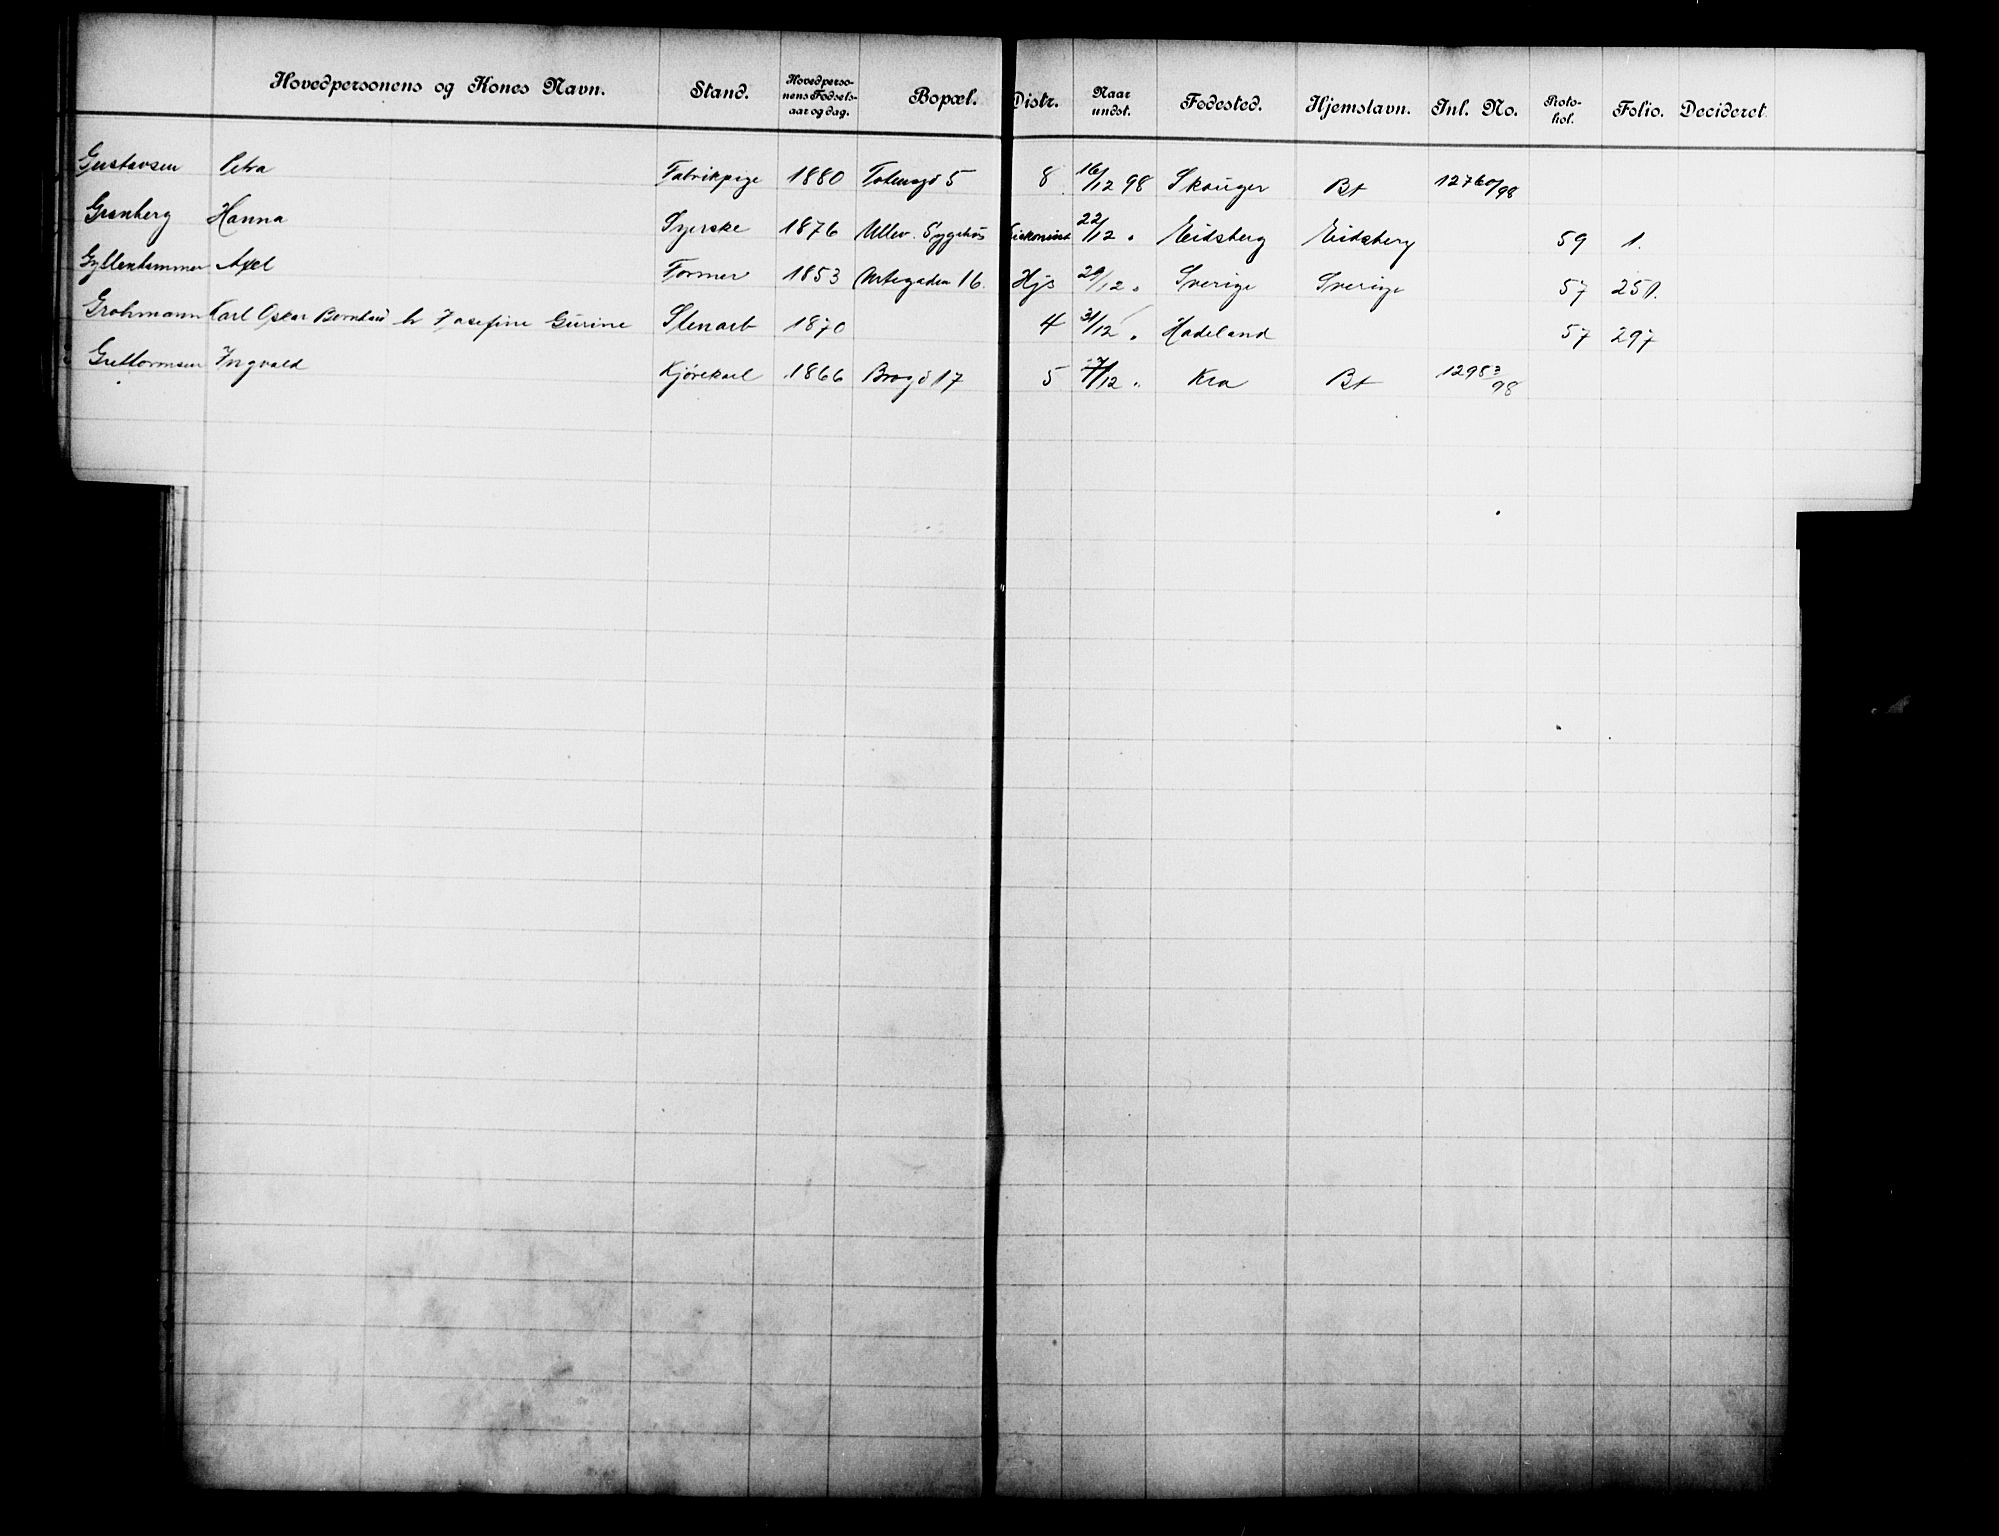 Hovedpersonens og Kones Navn. Stand. Hovedpersonens Fødselsaar og dag. Bopæl. Distr. Naar undst. Fødested. Hjemstavn. Inl. No. Protokol. Folio. Decideret.
Gustavsen Petra Fabrikpige 1880 Totensgd 5 8 16/12 98 Skouger Bt 12760/98
Granberg Hanna Syerske 1876 Ullev. Sygehus 22/12 " Eidsberg Eidsberg 59 1.
Gyllenhammer Axel Former 1853 Urtegaden 16. Hjs 29/12 " Sverige Sverige 57 251.
Grohmann Karl Oskar Bernhard h Josefine Gurine Stenarb 1870 4 31/12 " Hadeland 57 297
Guttormsen Ingvald Kjørekarl 1866 Brogd 17 5 /12 " Kra Bt 12983/98